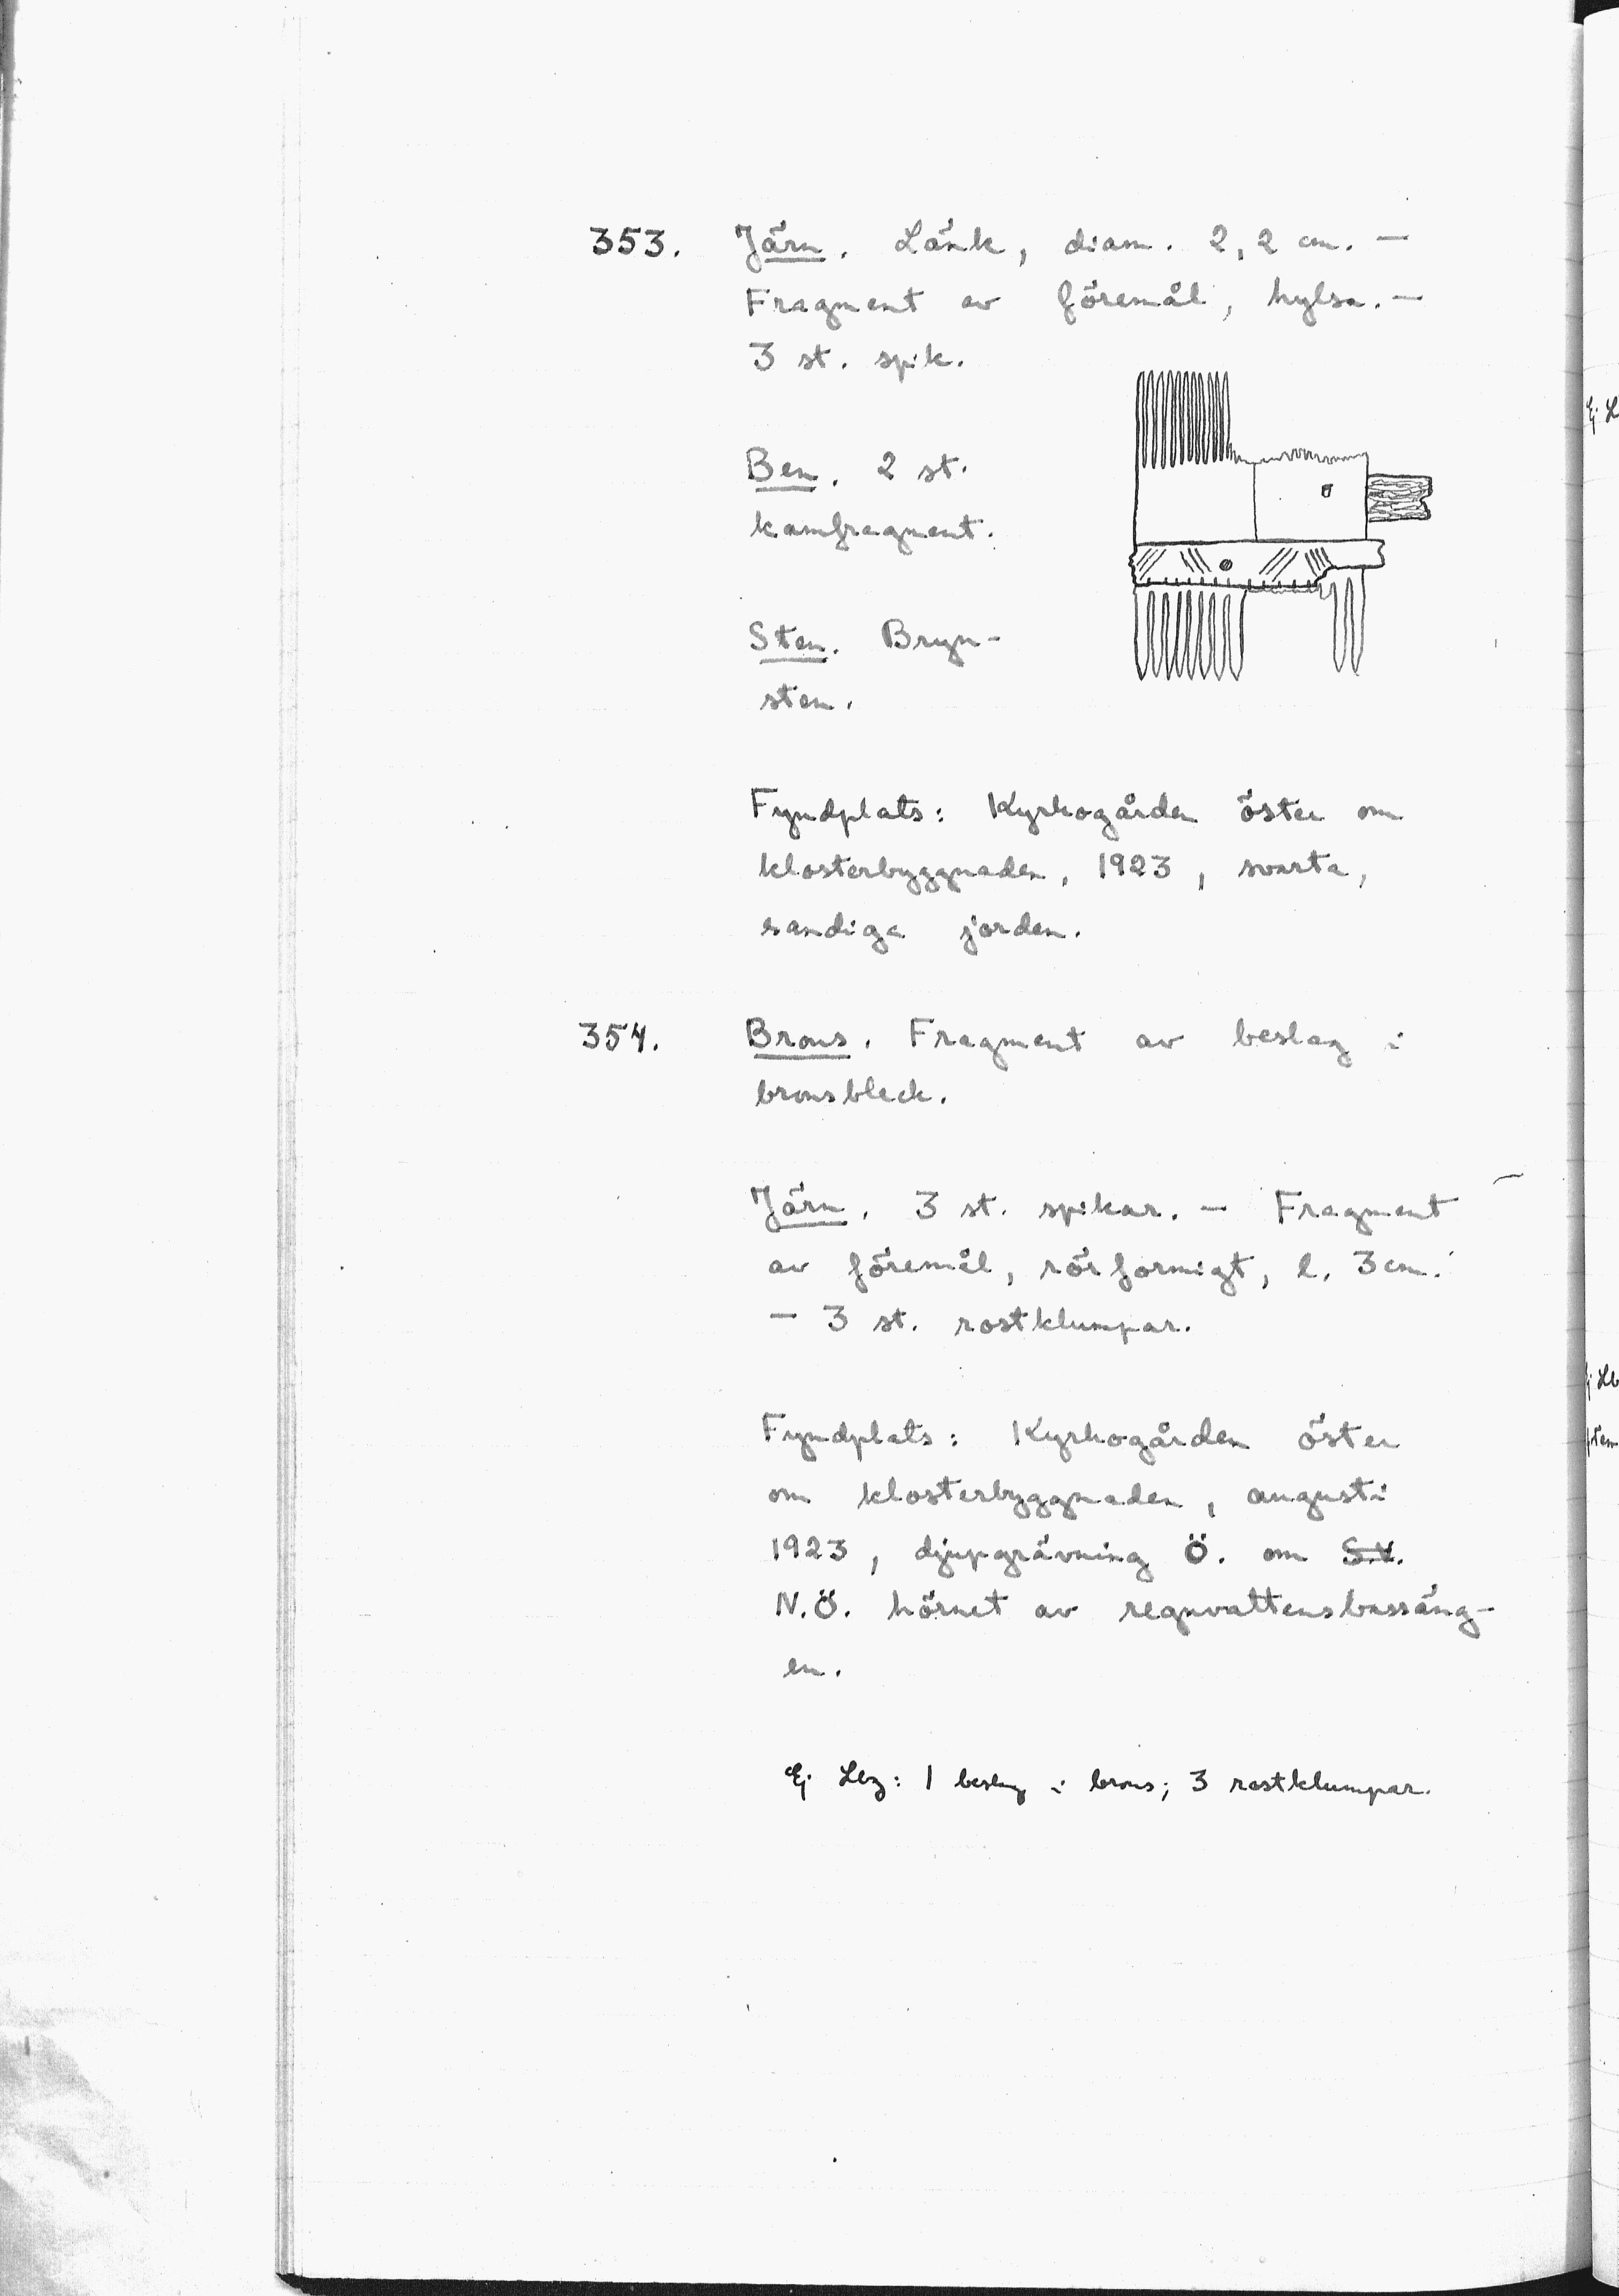 353. Järn. Länk, diam. 2,2 cm. —
Fragment av föremål, hylsa. —
3 st. spik.
Ben. 2 st.
kamfragment.
Sten. Bryn-
sten.
Fyndplats: Kyrkogården öster om
klosterbyggnaden, 1923, svarta,
sandiga jorden.
354. Brons. Fragment av beslag i
bronsbleck.
Järn. 3 st. spikar. — Fragment
av föremål, rörformigt, l. 3 cm.
— 3 st. rostklumpar.
Fyndplats: Kyrkogården öster
om klosterbyggnaden, augusti
1923, djupgrävning Ö. om S.V.
N.Ö. hörnet av regnvattensbassäng-
en.
Ej Lbg: 1 beslag i brons; 3 rostklumpar.